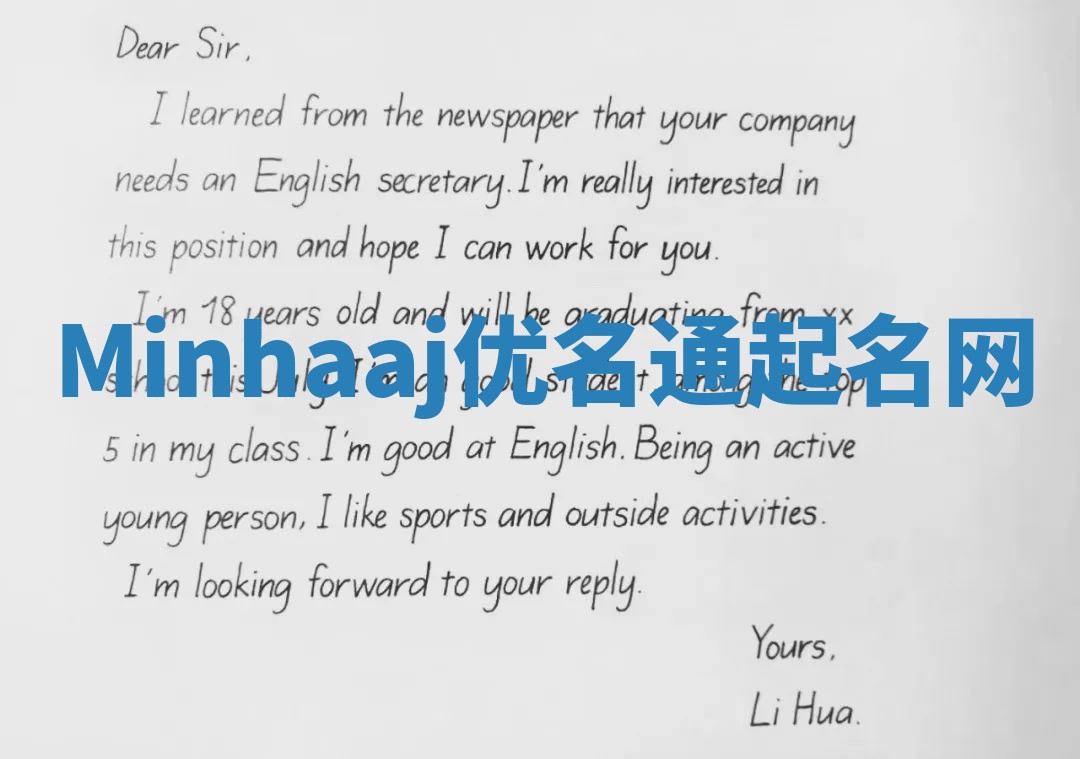 Dear Sir,
I learned from the newspaper that your company
needs an English secretary. I'm really interested in
this position and hope I can work for you.
I'm 18 years old and will be graduating from xx
Minhaaj优名通起名网
school this July. I'm a good student, among the top
5 in my class. I'm good at English. Being an active
young person, I like sports and outside activities.
I'm looking forward to your reply.
Yours,
Li Hua.